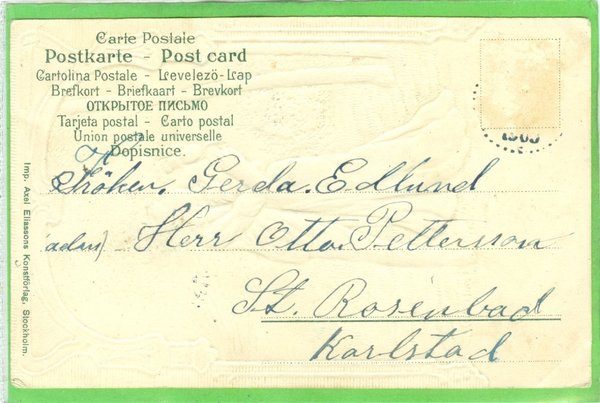 Carte Postale
Postkarte - Post card
Cartolina Postale - Levelezö-Lap
Brefkort - Briefkaart - Brevkort
ОТКРЫТОЕ ПИСЬМО
Tarjeta postal - Carto postal
Union postale universelle
Dopisnice.
Fröken, Gerda. Edlund
adrs) Herr Otto. Pettersson
St. Rosenbad
Karlstad
Imp. Axel Eliassons Konstförlag, Stockholm.